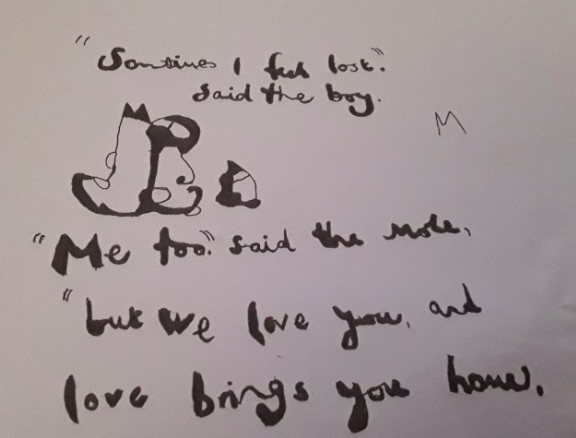 "Sometimes I feel lost."
said the boy.
M
"Me too." said the mole,
"but we love you, and
love brings you home.